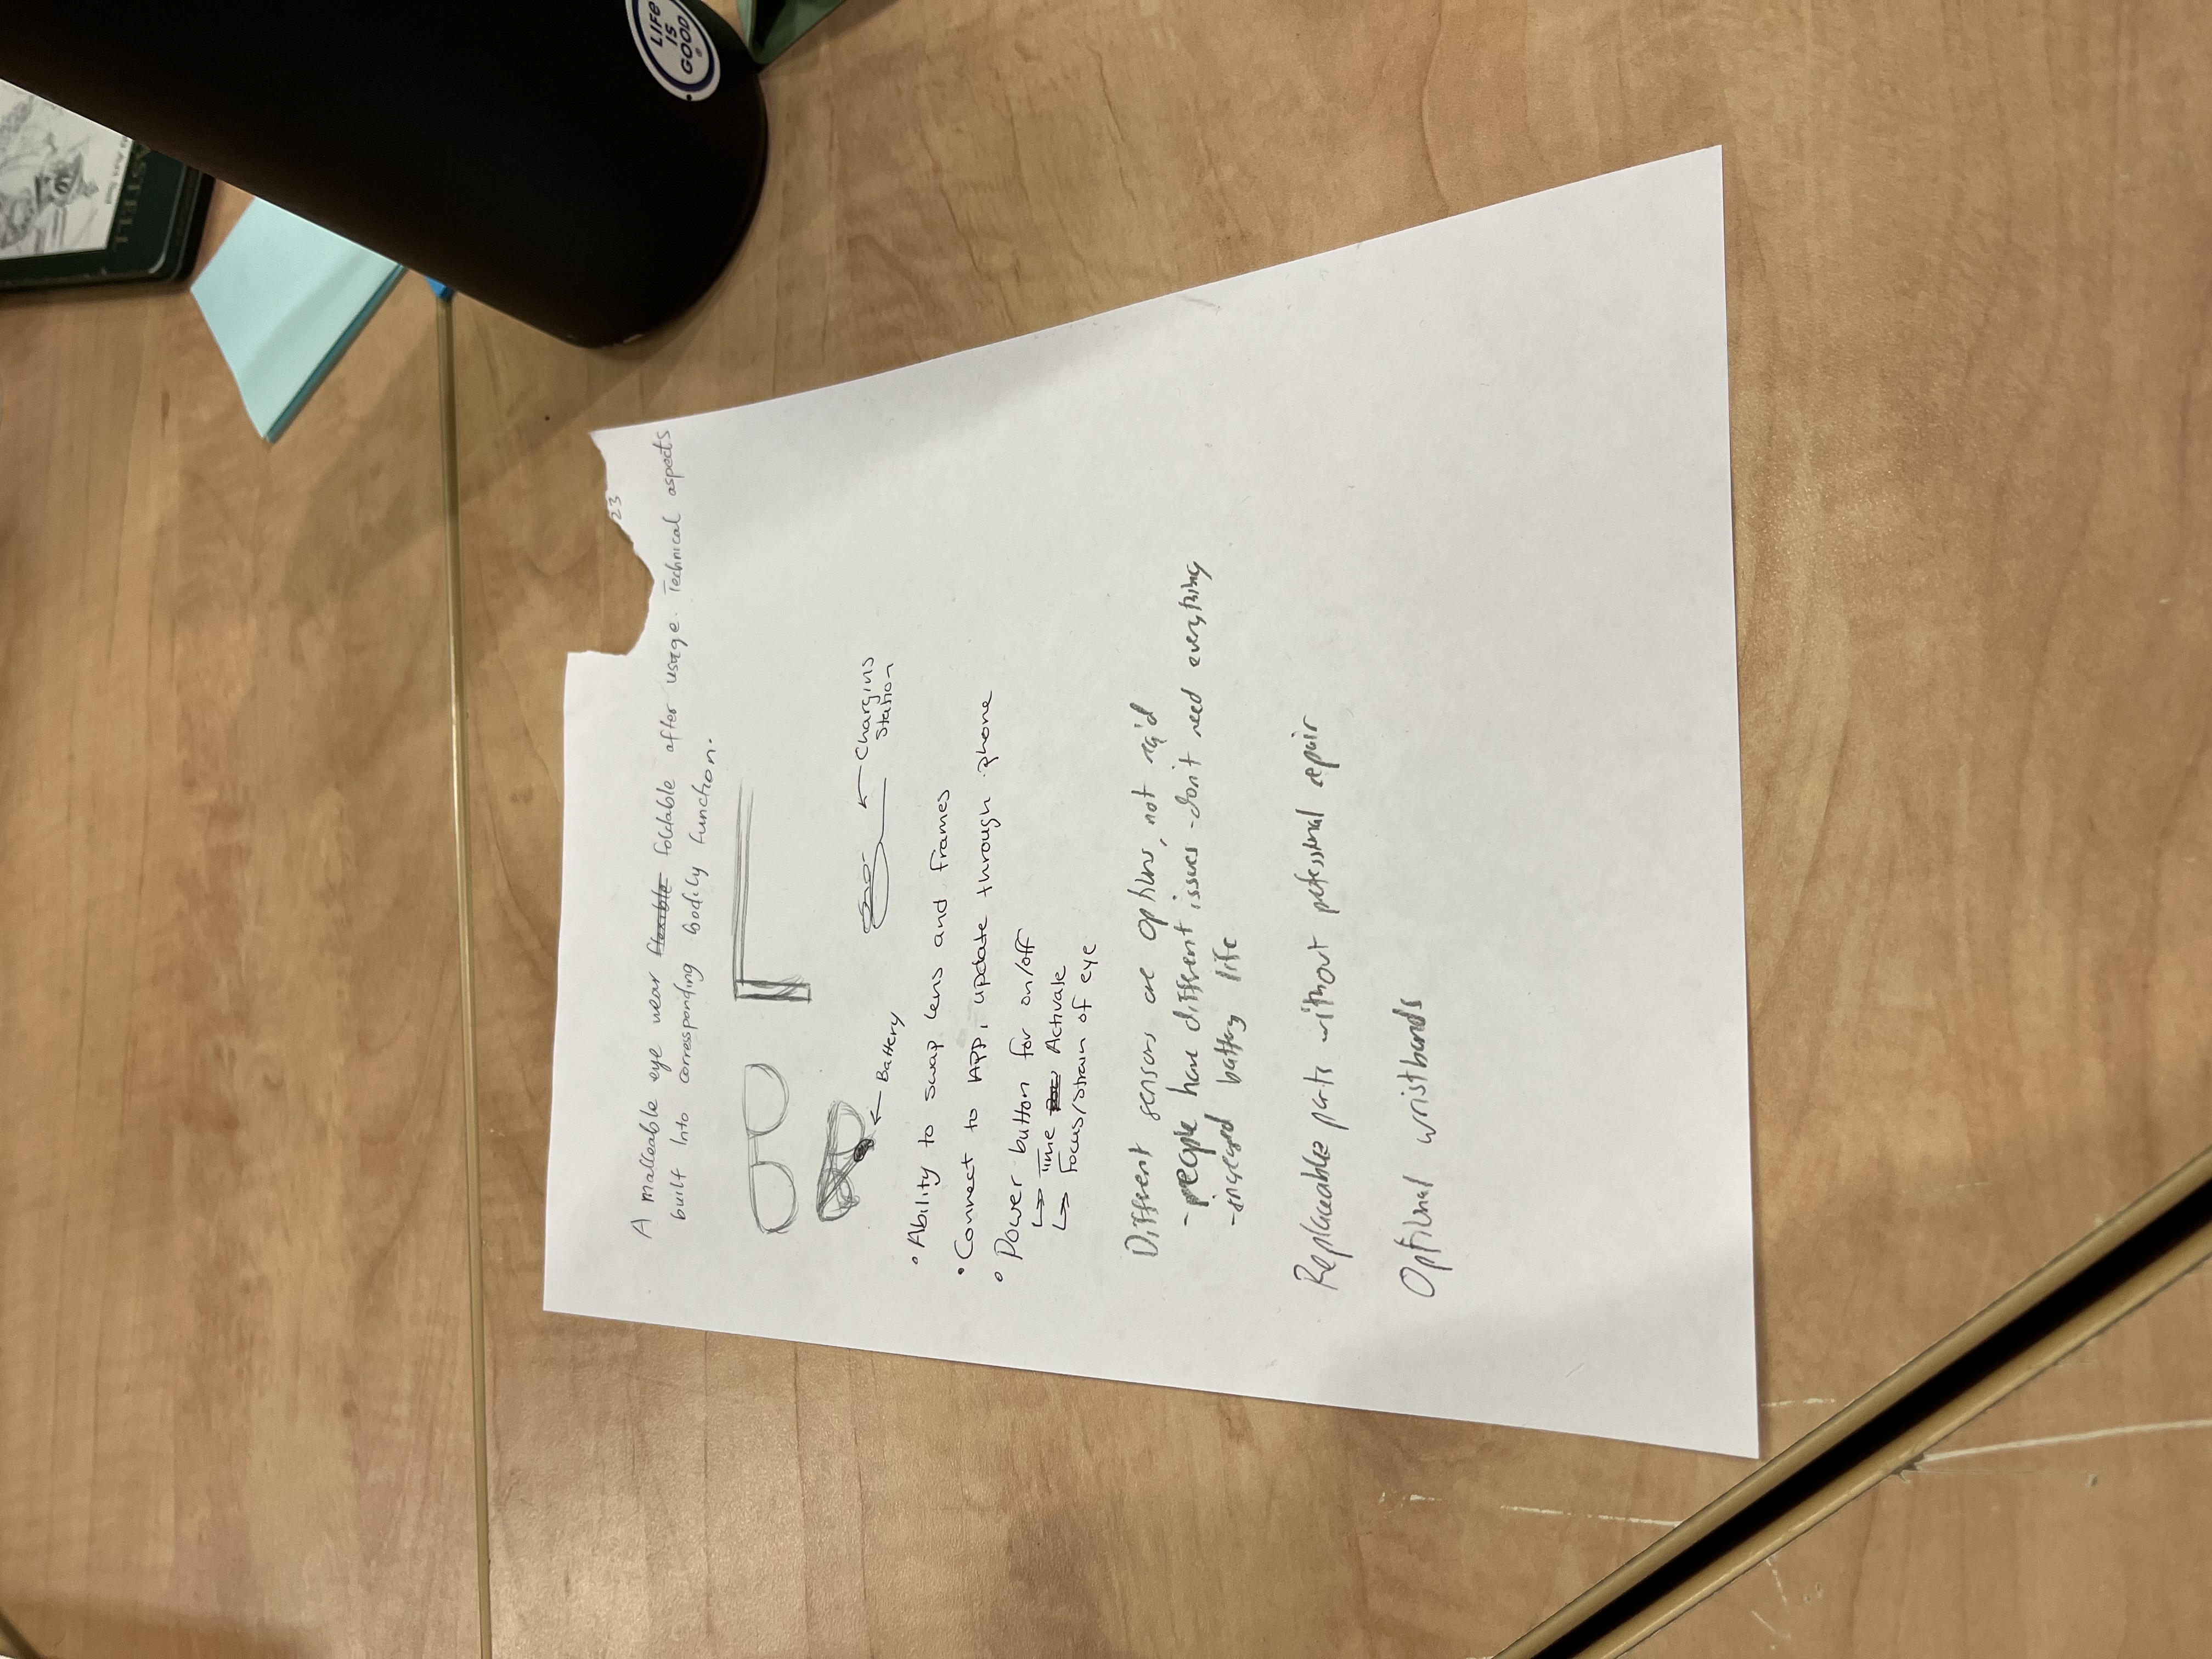 23
A malleable eye wear flexible foldable after usage. Technical aspects
built into corressponding bodily function.
Battery
Charging
Station
• Ability to swap lens and frames
• Connect to APP, update through phone
• Power button for on/off
↳ Time Activate
↳ Focus/strain of eye
Different sensors are options, not req'd
- people have different issues - don't need everything
- increased battery life
Replaceable parts without professional repair
Optional wristbands
LIFE
IS
GOOD